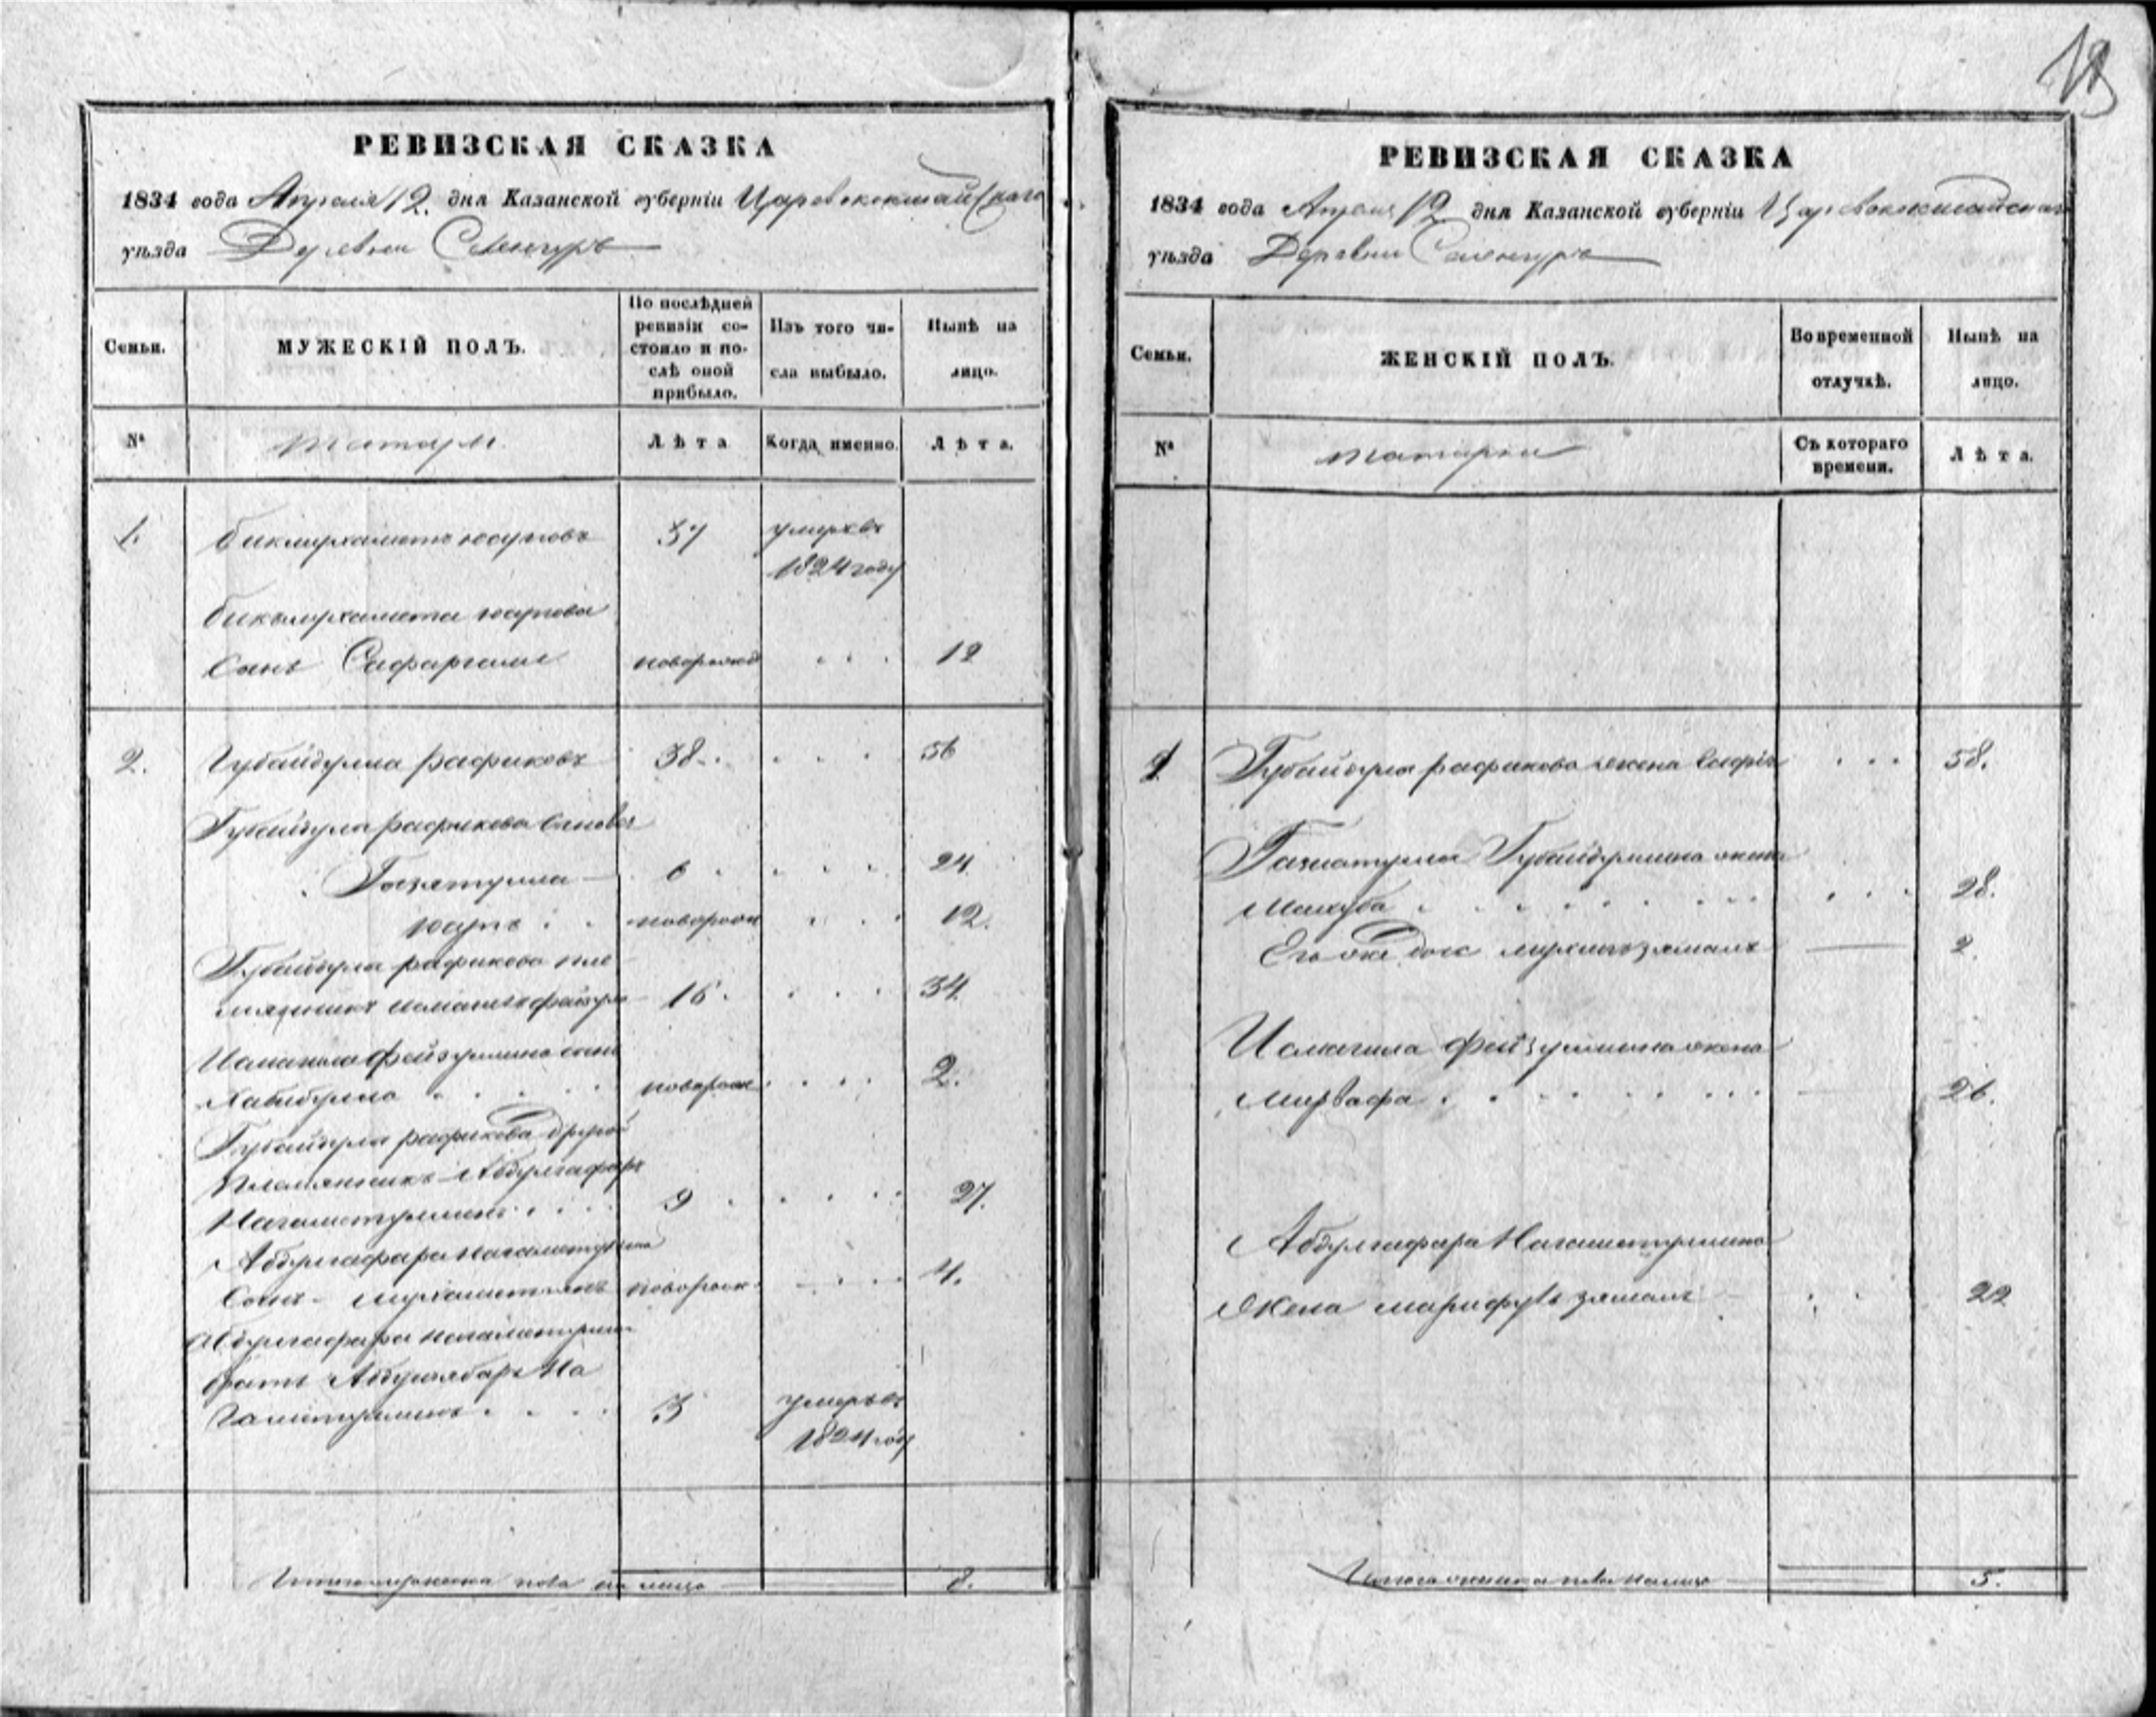 13
РЕВИЗСКАЯ СКАЗКА
1834 года Апреля 12. дня Казанской губерніи Царевококшайскаго
уѣзда Деревни Сленгуръ
Семьи.
МУЖЕСКІЙ ПОЛЪ.
По послѣдней ревизіи со-
стояло и по-
слѣ оной
прибыло.
Изъ того чи-
сла выбыло.
Нынѣ на
лицо.
№
татары
Лѣта
Когда именно.
Лѣта.
1. Бикмухаметъ юсуповъ 37 умре въ
1824 году
Бикмухамета юсупова
Сынъ Сафаргали новорожд . . . 12
2. Губайдулла рафиковъ 38 . . . . 56
Губайдулла рафикова Сыновья
Гизятулла 6 . . . . 24.
юсупъ . . новорож . . . 12.
Губайдулла рафикова пле
мянникъ исмагилъ файзул 16 . . . . 34.
Исмагила фейзуллина сынъ
Хабибулла . . . . новорож . . . . 2.
Губайдулла рафикова другой
Племянникъ Абдулгафаръ
Нагаметуллинъ . . . 9 . . . . 27.
Абдулгафара Нагаметуллина
Сынъ мухаметзянъ новорож . . . . 4.
Абдулгафара нагаметуллин
братъ Абдулзябаръ На
гаметуллинъ . . . 3 умре въ
1824 году
Итого мужеска пола на лицо 8.
РЕВИЗСКАЯ СКАЗКА
1834 года Апреля 12 дня Казанской губерніи Царевококшайскаго
уѣзда Деревни Сленгуръ
Семьи.
ЖЕНСКІЙ ПОЛЪ.
Во временной
отлучкѣ.
Нынѣ на
лицо.
№
татарки
Съ котораго
времени.
Лѣта.
2 Губайдулла рафикова жена Сафія . . . 58.
Гизиатуллы Губайдуллина жена
Махуба . . . . . . . . . . . 28.
Его же дочь мухипъзямалъ 2.
Исмагила фейзуллина жена
Мирвафа . . . . . . . . 26.
Абдулгафара Нагаметуллина
Жена марифуѣзямалъ . . 22
Итого женска пола на лицо 5.